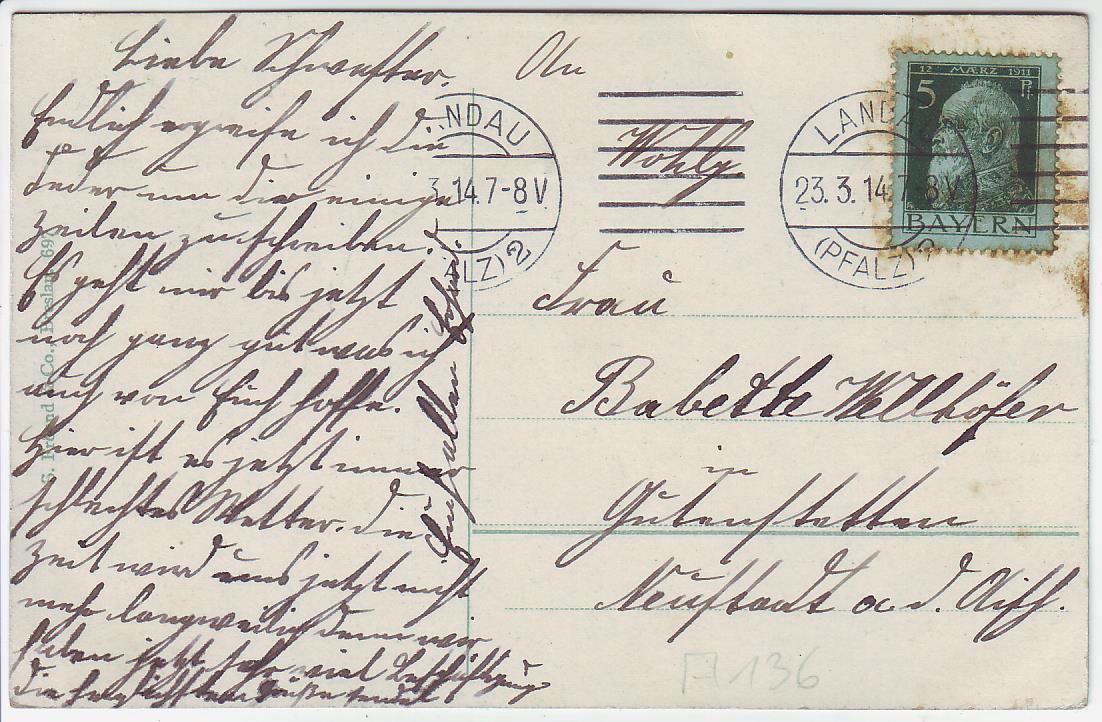 Liebe Schwester,
Endlich ergreife ich die
Feder um dir einige
Zeilen zu schreiben.
Es geht mir bis jetzt
noch ganz gut was ich
auch von Euch hoffe.
Hier ist es jetzt immer
schlechtes Wetter. die
Zeit wird uns jetzt nicht
mehr langweilig denn wir
haben jetzt sehr viel Beschäftigung
die herzlichsten Grüße sendet
Euch allen
An
Wohlg.
Frau
Babette Wellhöfer
in
Gutenstetten
Neustadt a. d. Aisch.
NDAU
3.14.7-8V
ALZ) 2
LANDAU
23.3.14.7-8V
(PFALZ) 2
12 MÆRZ 1911
5 Pf
BAYERN
S. Freund & Co., Breslau 69
A 136